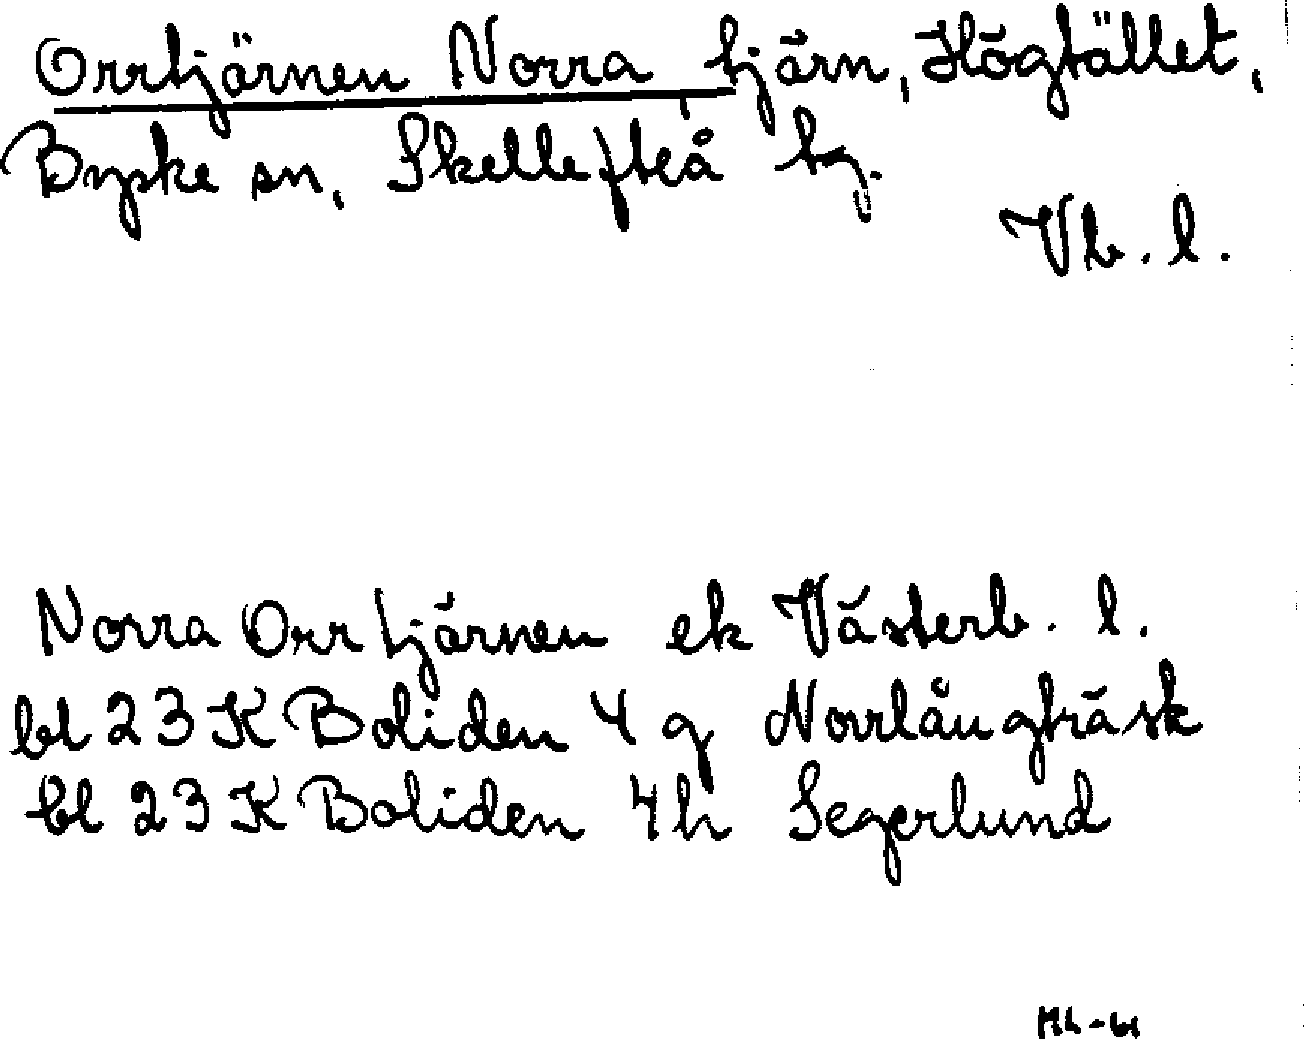 Orrtjärnen Norra tjärn, Högfället,
Byske sn, Skellefteå tg.
Vb. l.
Norra Orrtjärnen ek Västerb. l.
bl 23 K Boliden 4 g Norrlångträsk
bl 23 K Boliden 4h Segerlund